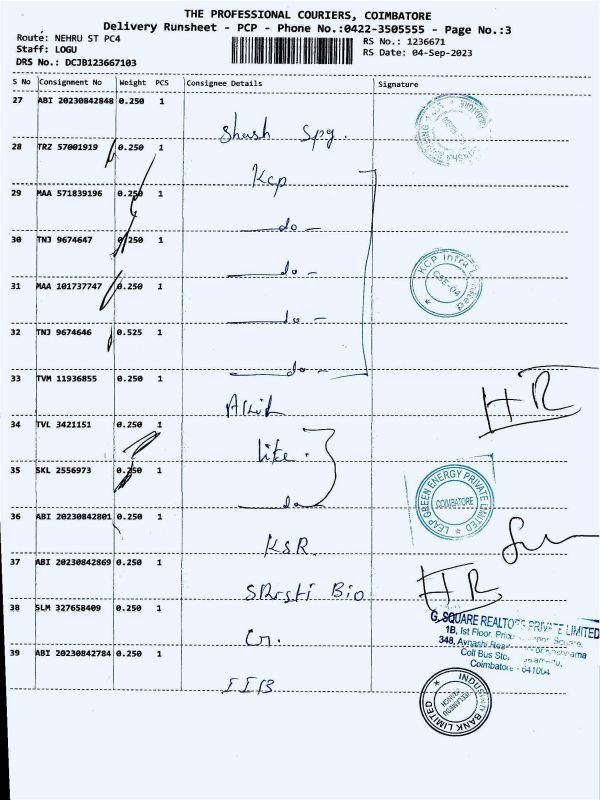 THE PROFESSIONAL COURIERS, COIMBATORE
Delivery Runsheet - PCP - Phone No.:0422-3505555 - Page No.:3
Route: NEHRU ST PC4
RS No.: 1236671
Staff: LOGU
RS Date: 04-Sep-2023
DRS No.: DCJB123667103
S No Consignment No Weight PCS Consignee Details Signature
27 ABI 20230842848 0.250 1
Spg.
28 TRZ 57001919 0.250 1
Kcp
29 MAA 571839196 0.250 1
do
30 TNJ 9674647 0.250 1
do
31 MAA 101737747 0.250 1
KCP Infra Limited
CBE-04
do
32 TNJ 9674646 0.525 1
do
33 TVM 11936855 0.250 1
HR
34 TVL 3421151 0.250 1
like.
35 SKL 2556973 0.250 1
LEAP GREEN ENERGY PRIVATE LIMITED
COIMBATORE
do
36 ABI 20230842801 0.250 1
KSR
37 ABI 20230842869 0.250 1
Bio
HR
38 SLM 327658409 0.250 1
G SQUARE REALTORS PRIVATE LIMITED
1B, Ist Floor,
348, Avinashi
Coll Bus
Coimbatore - 641004
39 ABI 20230842784 0.250 1
IIB
INDUSIND BANK LIMITED